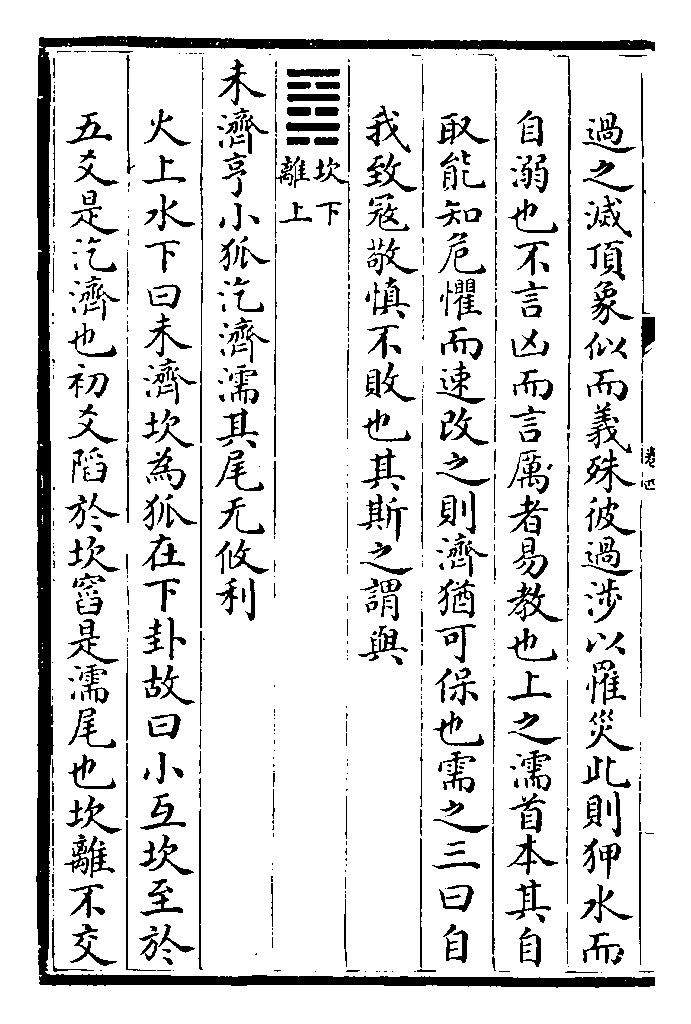 過之滅頂象似而義殊彼過涉以罹災此則狎水而
自溺也不言凶而言厲者易教也上之濡首本其自
取能知危懼而速改之則濟猶可保也需之三曰自
我致寇敬慎不敗也其斯之謂與
坎下
離上
未濟亨小狐汔濟濡其尾无攸利
火上水下曰未濟坎為狐在下卦故曰小互坎至於
五爻是汔濟也初爻陷於坎窞是濡尾也坎離不交
卷四